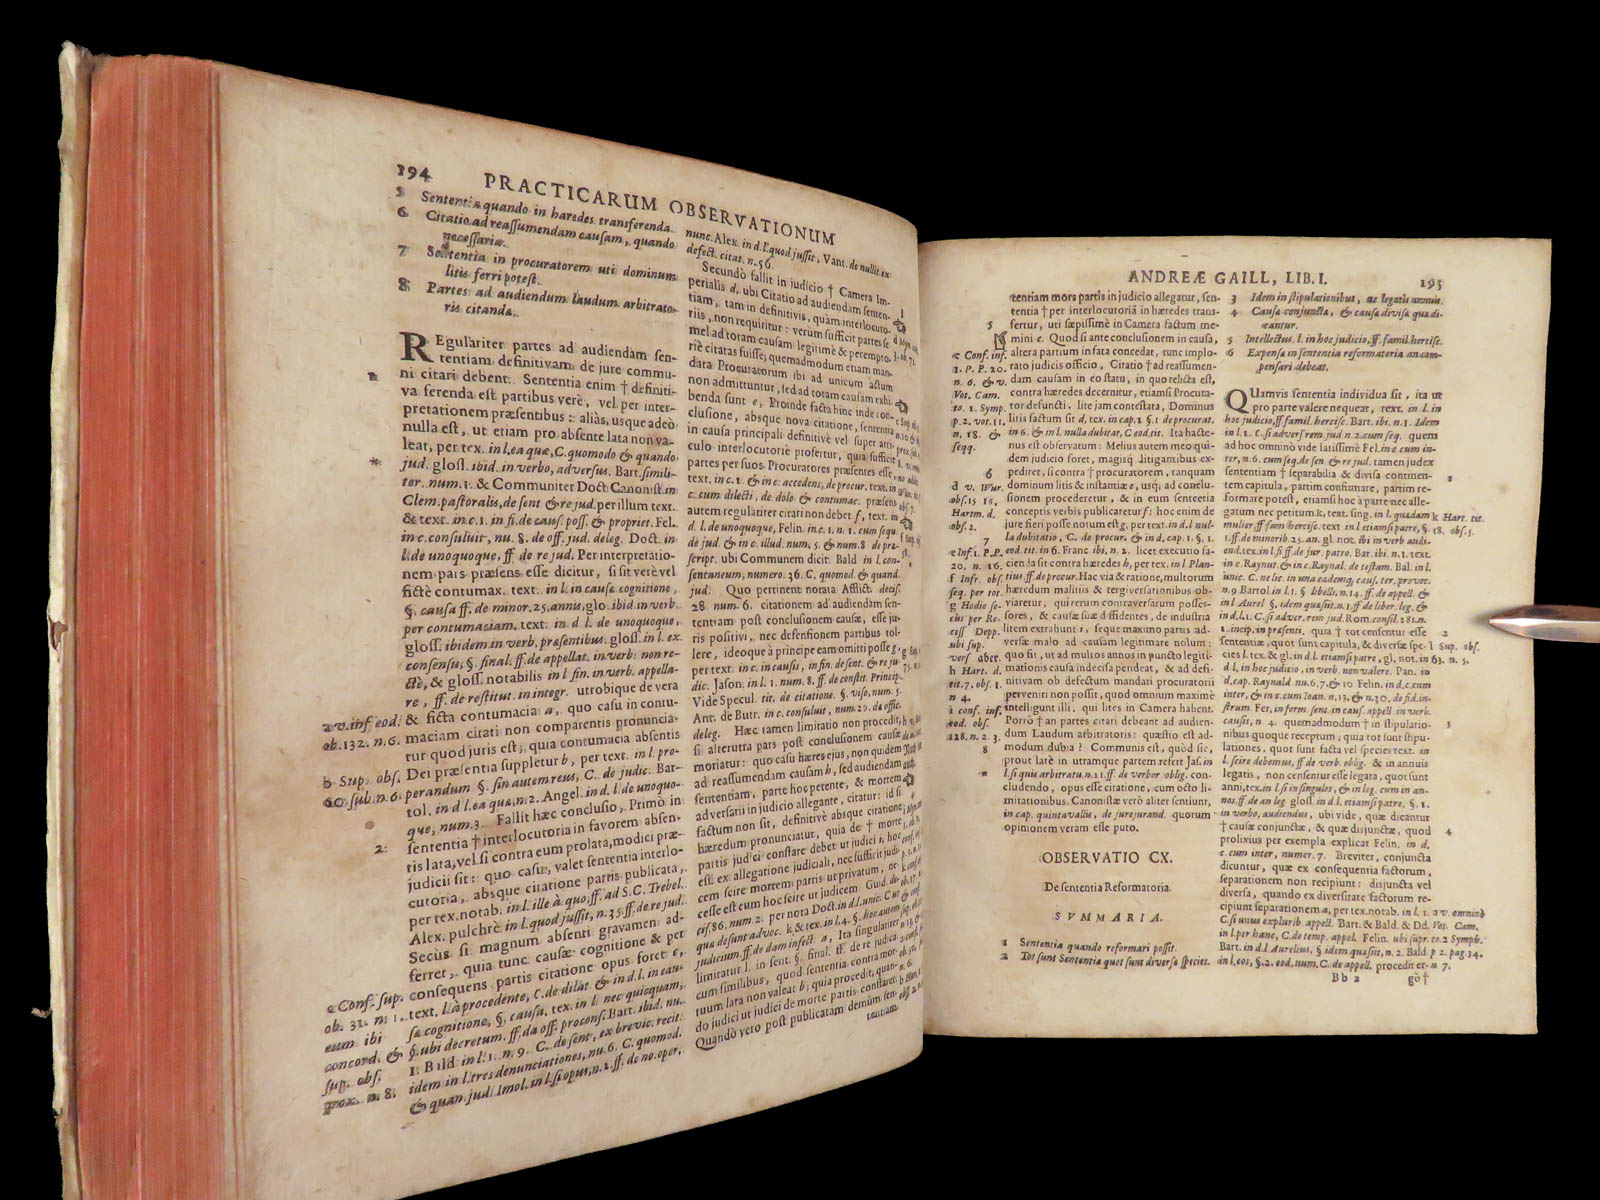 194 PRACTICARUM OBSERVATIONUM
5 Sententia quando in hæredes transferenda.
6 Citatio ad reaſſumendam cauſam, quando
neceſſaria.
7 Sententia in procuratorem uti dominum
litis ferri poteſt.
8 Partes ad audiendum laudum arbitrato-
ris citandæ.
REgulariter partes ad audiendàm ſen-
tentiam definitivam de jure commu-
ni citari debent. Sententia enim † definiti-
va ferenda eſt partibus verè, vel per inter-
pretationem præſentibus: aliàs, usque adeò
nulla eſt, ut etiam pro abſente lata non va-
leat, per tex. in l. ea quæ, C. quomodo & quando
jud. gloſſ. ibid. in verbo, adverſus. Bart. ſimili-
ter. num. 1. & Communiter Doct. Canoniſt. in
Clem. paſtoralis, de ſent & re jud. per illum text.
& text. in c. 1. in fi. de cauſ. poſſ. & propriet. Fel.
in c. conſuluit, nu. 8. de off. jud. deleg. Doct. in
l. de unoquoque, ff. de re jud. Per interpretatio-
nem pars præſens eſſe dicitur, ſi ſit verè vel
fictè contumax. text. in l. in cauſæ cognitione,
§. cauſa ff. de minor. 25. annis, glo. ibid. in verb.
per contumaciam. text. in d. l. de unoquoque,
gloſſ. ibidem in verb. præſentibus. gloſſ. in l. ex
conſenſu, §. final. ff. de appellat. in verb. non re-
ctè, & gloſſ. notabilis in l. fin. in verb. appella-
re, ff. de reſtitut. in integr. utrobique de vera
a v. inf. eod. & ficta contumacia a, quo caſu in contu-
ob. 132. n. 6. maciam citati non comparentis pronuncia-
tur quod juris eſt; quia contumacia abſentis
b Sup. obſ. Dei præſentia ſuppletur b, per text. in l. pro-
60. ſub. n. 6. perandum §. ſin autem reus, C. de judic. Bar-
tol. in d l. ea quæ, n. 2. Angel. in d. l. de unoquo-
que, num. 3. Fallit hæc concluſio, Primò in
2 ſententia † interlocutoria in favorem abſen-
tis lata, vel ſi contra eum prolata, modici præ-
judicii ſit: quo caſu, valet ſententia interlo-
cutoria, absque citatione partis publicata,
per tex. notab. in l. ille à quo, ff. ad S. C. Trebel.
Alex. pulchrè in l. quod juſſit, n. 35. ff. de re jud.
Secùs ſi magnum abſenti gravamen ad-
ferret, quia tunc cauſæ cognitione & per
conſequens partis citatione opus foret c,
c Conf. ſup. text. l. à procedente, C. de dilat. & in d. l. in cau-
ob. 31. n. 1. ſæ cognitione, §. cauſa. tex. in l. nec quicquam,
eum ibi §. ubi decretum. ff. da off. proconſ. Bart. ibid. nu.
concord. & 1. Bald in l. 1. n. 9. C. de ſent, ex brevic. recit.
ſup. obſ. idem in l. tres denunciationes, nu. 6. C. quomod.
prox. n. 8. & quan. jud. Imol. in l. ſi opus, n. 2. ff. de no. oper.
nunc. Alex. in d. l. quod juſſit, Vant. de nullit. ex
defect. citat. n. 56.
Secundò fallit in judicio † Cameræ Im-
perialis d, ubi Citatio ad audiendam ſenten-
tiam, tam in definitivis, quàm interlocuto-
riis, non requiritur: verùm ſufficit partes ſe-
mel ad totam cauſam legitimè & perempto-
riè citatas fuiſſe; quemadmodum etiam man-
data Procuratorum ibi ad unicum actum
non admittuntur, ſed ad totam cauſam exhi-
benda ſunt e, Proinde facta hinc inde con-
cluſione, absque nova citatione, ſententia
in cauſa principali definitivè vel ſuper arti-
culo interlocutoriè profertur, quia ſufficit
partes per ſuos Procuratores præſentes eſſe,
text. in c. 1. & in c. accedens, de procur. text. in
c. cum dilecti. de dolo & contumac. præſens
autem regulariter citari non debet f, text. in
d. l. de unoquoque, Felin. in c. 1. n. 1. cum ſequ.
de jud. & in c. illud. num. 5. & num. 8 de præ-
ſcript. ubi Communem dicit. Bald in l. con-
ſentaneum, numero. 36. C. quomod. & quand.
jud. Quo pertinent notata Afflict. deciſ.
28. num. 6. citationem ad audiendam ſen-
tentiam poſt concluſionem cauſæ, eſſe ju-
ris poſitivi, nec defenſionem partibus tol-
lere, ideoque à principe eam omitti poſſe g,
per text. in c. in cauſis, in fin. de ſent. & re ju-
dic. Jaſon. in l. 1. num. 8. ff. de conſtit. Princip.
Vide Specul. tit. de citatione. §. viſo, num. 5.
Ant. de Butr. in c. conſuluit, num. 29. de offic.
deleg. Hæc tamen limitatio non procedit,
ſi alterutra pars poſt concluſionem cauſæ
moriatur: quo caſu hæres ejus, non quidem
ad reaſſumendam cauſam h, ſed audiendam
ſententiam, parte hoc petente, & mortem
adverſarii in judicio allegante, citatur: id ſi
factum non ſit, definitivè absque citatione
hæredum pronunciatur, quia de † morte
partis judici conſtare debet ut judici i, hoc
eſt ex allegatione judiciali, nec ſufficit judi-
cem ſcire mortem partis ut privatum, ne-
ceſſe eſt eum hoc ſcire ut judicem. Guid. de-
ciſ. 86. num. 2. per nota Doct. in d. l. unic. C ut
quæ deſunt advoc. k & tex. in l. 4. §. hoc autem
judicium. ff. de dam infect. a, Ita ſingulariter
limitatur l. in ſent. §. final. ff. de re judic.
cum ſimilibus, quod ſententia contra mor-
tuum lata non valeat b; quia procedit, quan-
do judici ut judici de morte partis conſtaret.
Quando verò poſt publicatam demùm ſen-
tentiam
ANDREÆ GAILL, LIB. I. 195
tentiam mors partis in judicio allegatur, ſen-
tentia † per interlocutoriã in hæredes trans-
5 fertur, uti ſæpiſſimè in Camera factum me-
mini c. Quod ſi ante concluſionem in cauſa,
c Conf. inf. altera partium in fata concedat, tunc implo-
1. P. P. 20. rato judicis officio, Citatio † ad reaſſumen-
n. 6. & v. dam cauſam in eo ſtatu, in quo relicta eſt,
Vot. Cam. contra hæredes decernitur, etiamſi Procura-
to. 1. Symp. tor defuncti, lite jam conteſtata, Dominus
p. 2. vot. 11. litis factum ſit d, tex. in cap. 1. § 1 de procurat.
n. 18. & in 6. & in l. nulla dubitat, C eod. tit. Ita hacte-
ſeqq. nus eſt obſervatum: Melius autem meo qui-
dem judicio foret, magisq́ litigantibus ex-
6 pediret, ſi contra † procuratorem, tanquam
d v. Wur. dominum litis & inſtantiæ e, usq; ad conclu-
obſ. 15 16. ſionem procederetur, & in eum ſenteetia
Hartm. d. conceptis verbis publicaretur f: hoc enim de
obſ. 2. jure fieri poſſe notum eſt g, per text. in d. l nul-
7 la dubitatio, C. de procur. & in d. cap. 1. §. 1.
e Inf. 1. P. P. eod. tit. in 6. Franc ibi, n. 2. licet executio fa-
20. n. 16. cienda ſit contra hæredes h, per tex. in l. Plan-
f Inſr. obſ. tius ff. de procur. Hac via & ratione, multorum
ſeq. per tot. hæredum malitiis & tergiverſationibus ob-
g Hodie ſe- viaretur, qui rerum contraverſarum poſſeſ-
cùs per Re- ſores, & cauſæ ſuæ diffidentes, de induſtria
ceſſ Depp. litem extrahunt i, ſeque maximo partus ad-
ubi ſup. verſæ malo ad cauſam legitimare nolunt:
verſ aber. quo fit, ut ad multos annos in puncto legiti-
h Hart. d. mationis cauſa indeciſa pendeat, & ad defi-
tit. 7. obſ. 1. nitivam ob defectum mandati procuratorii
n. 4. perveniri non poſſit, quod omnium maximè
i conf. inf. intelligunt illi, qui lites in Camera habent.
eod. obſ. Porrò † an partes citari debeant ad audien-
128. n. 2. 3. dum Laudum arbitratoris: quæſtio eſt ad-
8 modum dubia? Communis eſt, quòd ſic,
prout latè in utramque partem refert Jaſ. in
* l. ſi quis arbitratu. n. 21. ff. de verbor oblig. con-
cludendo, opus eſſe citatione, cum octo li-
mitationibus. Canoniſtæ verò aliter ſentiunt,
in cap. quintavallis, de jurejurand. quorum
opinionem veram eſſe puto.
OBSERVATIO CX.
De ſententia Reformatoria.
SVMMARIA.
1 Sententia quando reformari poſſit.
2 Tot ſunt Sententiæ quot ſunt diverſæ ſpecies.
3 Idem in ſtipulationibus, ac legatis annuis.
4 Cauſa conjuncta, & cauſa diviſa quæ di-
cantur.
5 Intellectus. l. in hoc judicio, ff. famil. herciſc.
6 Expenſa in ſententia reformatoria an com-
penſari debeat.
QUamvis ſententia individua ſit, ita ut
pro parte valere nequeat, text. in l. in
hoc judicio, ff famil. herciſc. Bart. ibi. n. 1. Idem
in l. 1. C. ſi adverſ rem. jud n. 2. cum ſeq. quem
ad hoc omninò vide latiſſimè Fel. in c. cum in-
ter, n. 6. cum ſeq. de ſen. & re jud. tamen judex
ſententiam † ſeparabilia & diviſa continen- 1
tem capitula, partim confirmare, partim re-
formare poteſt, etiamſi hoc à parte nec alle-
gatum nec petitum k, text. ſing. in l. quædam k Hart. tit.
mulier, ff fam herciſc. text in l etiamſi patre, § 18. obſ. 5.
1. ff de minorib. 25. an. gl. not. ibi in verb audi-
end. tex. in l. ſi ff de jur. patro. Bar. ibi. n. 1. text.
in c. Raynut. & in c. Raynal. de teſtam. Bal. in l.
unic. C. ne lic. in una eademq; cauſ. ter. provoc.
n. 9 Bartol. in l. 1. § libelli, n. 14. ff. de appell. &
in l Aurel §. idem quæſiit, n. 1. ff de liber. leg. &
in d. l. 1. C. ſi adver. rem jud. Rom. conſil. 281. n.
1. incip. in præſenti, quia † tot cenſentur eſſe 2
ſententiæ, quot ſunt capitula, & diverſæ ſpe- l Sup. obſ.
cies l. tex. & gl. in d. l. etiamſi patre, gl. not. in 63. n. 5.
d. l, in hoc judicio, in verb. non valere. Pan. in
d. cap. Raynald. nu. 6. 7. & 10. Felin. in d. c. cum
inter, & in c. cum Ioan. n. 13. & n. 30. de fid. in-
ſtrum. Fer, in form. ſent. in cauſ. appell in verb.
cauſis, n. 4. quemadmodum † in ſtipulatio- 3
nibus quoque receptum, quia tot ſunt ſtipu-
lationes, quot ſunt facta vel ſpecies text. in
l. ſcire debemus, ff de verb. oblig. & in annuis
legatis, non cenſentur eſſe legata, quot ſunt
anni, tex. in l. ſi in ſingulos, & in leg. cum in an-
nos, ff. de an leg. gloſſ. in d. l. etiamſi patre, §. 1.
in verbo, audiendus, ubi vide, quæ dicantur
† cauſæ conjunctæ, & quæ disjunctæ, quod 4
prolixius per exempla explicat Felin. in d.
c. cum inter, numer. 7. Breviter, conjuncta
dicuntur, quæ ex conſequentia factorum,
ſeparationem non recipiunt: disjuncta vel
diverſa, quando ex diverſitate factorum re-
cipiunt ſeparationem a, per tex. notab. in l. 1. a v. omninò
C. ſi unus explurib. appell. Bart. & Bald. & Dd. Vot. Cam.
in l. per hanc, C. de temp. appel. Felin. ubi ſupr. to. 2 Symph.
Bart. in d. l Aurelius, § idem quæſiit, n. 2. Bald. p 2. pag. 34.
in l, eos, §. 2. eod, num. C. de appell. procedit er- n. 7.
Bb 2 gò †